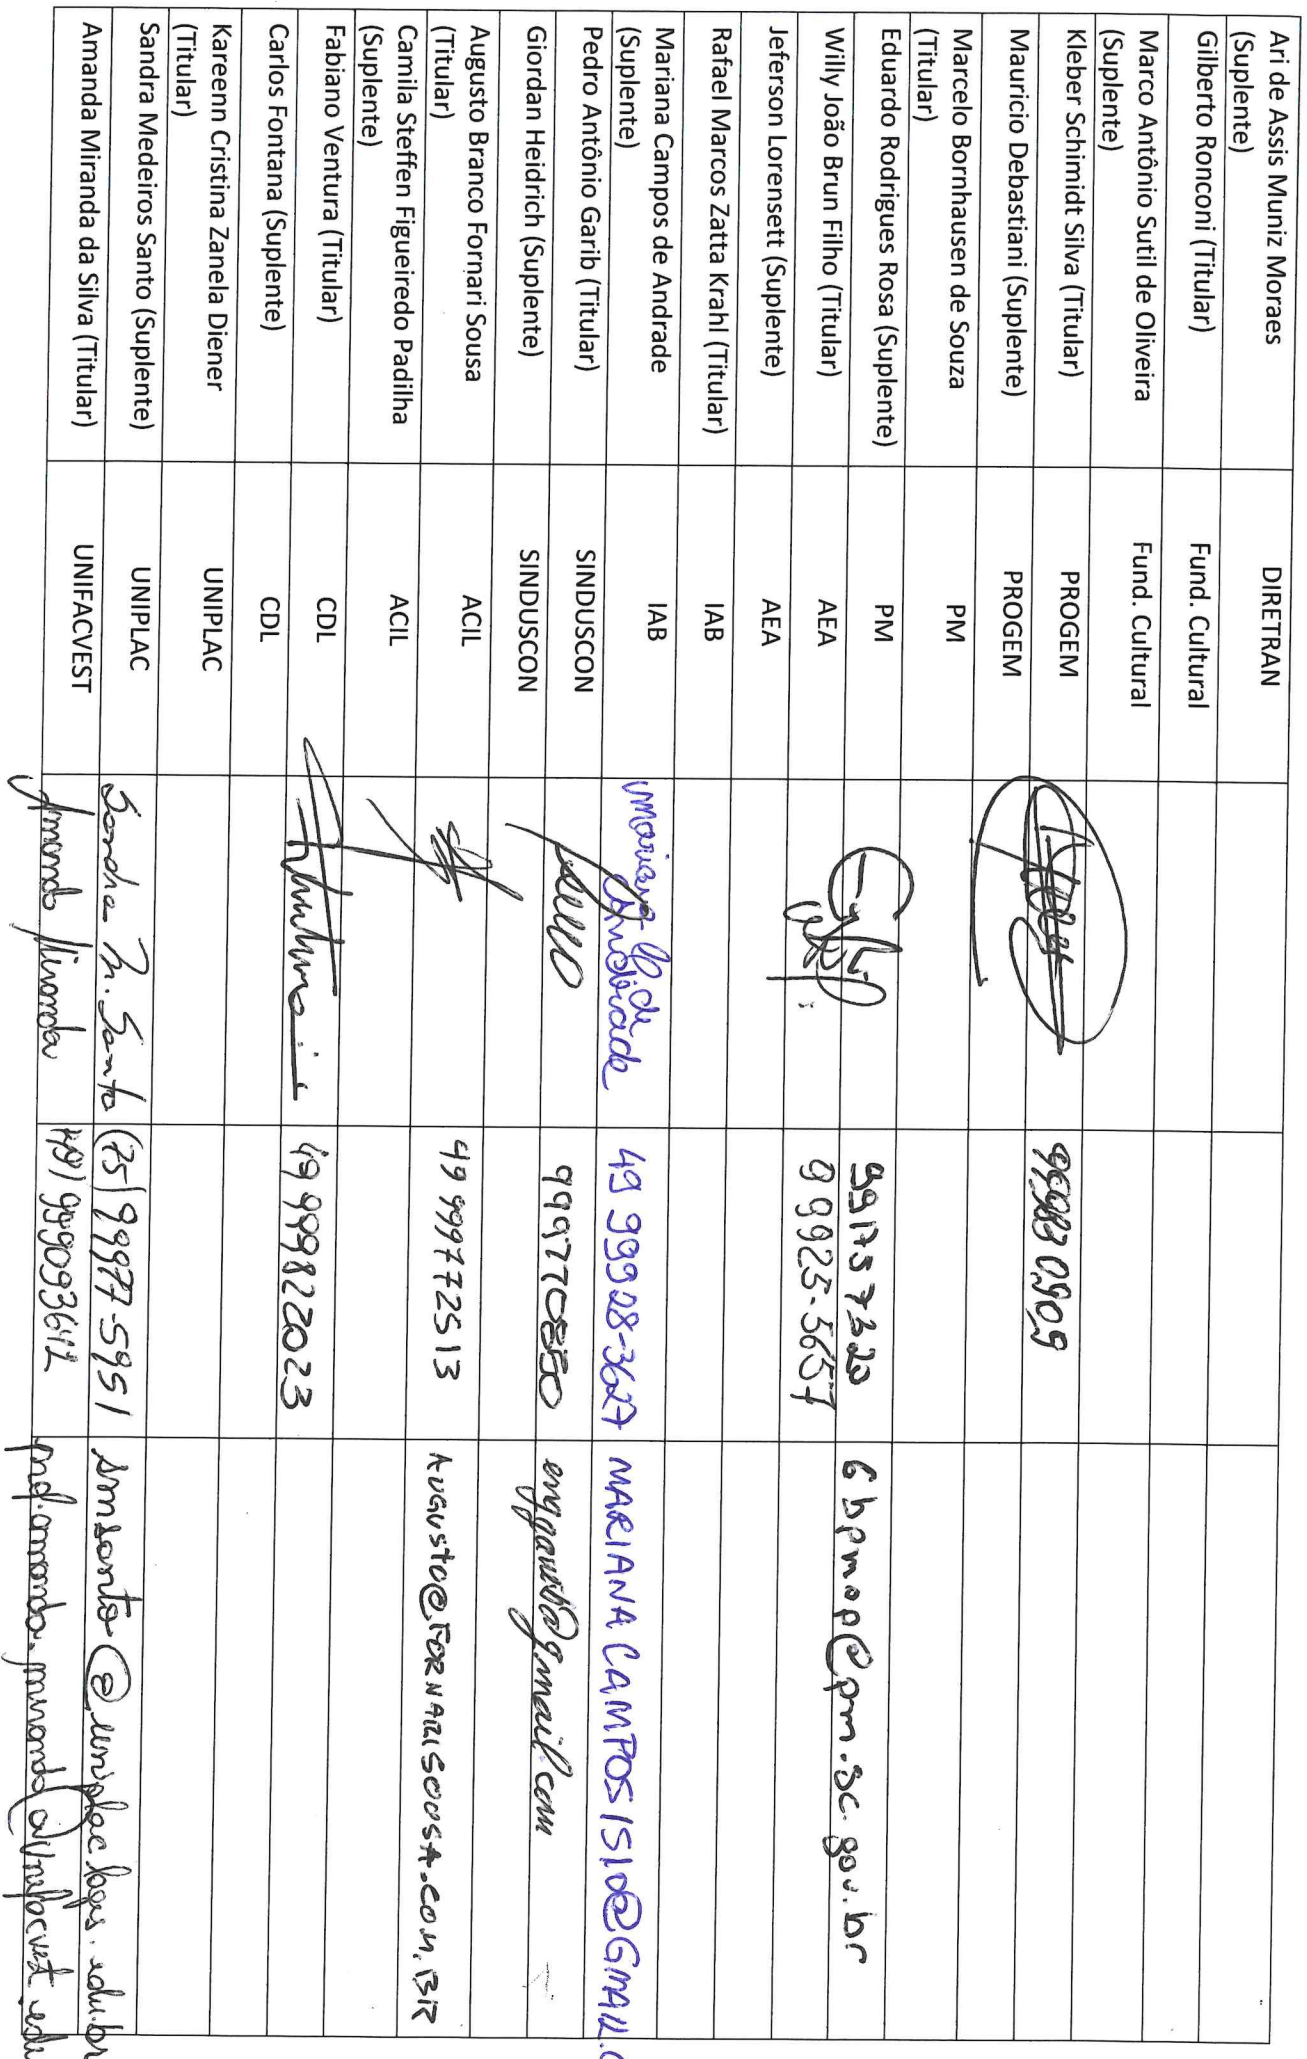 Ari de Assis Muniz Moraes
(Suplente)
DIRETRAN
Gilberto Ronconi (Titular)
Fund. Cultural
Marco Antônio Sutil de Oliveira
(Suplente)
Fund. Cultural
Kleber Schimidt Silva (Titular)
PROGEM
999830909
Mauricio Debastiani (Suplente)
PROGEM
Marcelo Bornhausen de Souza
(Titular)
PM
Eduardo Rodrigues Rosa (Suplente)
PM
991757320
6bpmop@pm.sc.gov.br
Willy João Brun Filho (Titular)
AEA
9 9925-5657
Jeferson Lorensett (Suplente)
AEA
Rafael Marcos Zatta Krahl (Titular)
IAB
Mariana Campos de Andrade
(Suplente)
IAB
Mariana C. de
Andrade
49 99928-3627
MARIANACAMPOS1510@GMAIL.C
Pedro Antônio Garib (Titular)
SINDUSCON
999770850
enggarib@gmail.com
Giordan Heidrich (Suplente)
SINDUSCON
Augusto Branco Fornari Sousa
(Titular)
ACIL
49 999772513
AUGUSTO@FORNARISOUSA.COM.BR
Camila Steffen Figueiredo Padilha
(Suplente)
ACIL
Fabiano Ventura (Titular)
CDL
49 999822023
Carlos Fontana (Suplente)
CDL
Kareenn Cristina Zanela Diener
(Titular)
UNIPLAC
Sandra Medeiros Santo (Suplente)
UNIPLAC
Sandra M. Santo
(75) 99977-5951
smsanto@uniplaclages.edu.br
Amanda Miranda da Silva (Titular)
UNIFACVEST
Amanda Miranda
49) 999093612
prof.amanda.miranda@unifacvest.edu